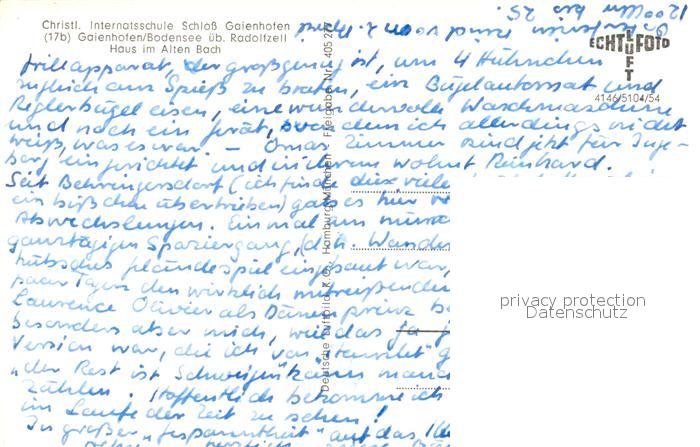 Christl. Internatsschule Schloß Gaienhofen
(17b) Gaienhofen/Bodensee üb. Radolfzell
Haus im Alten Bach
1200 bis 25.
ECHT LUFT FOTO
4146/5104/54
Deutsche Luftbild K.G., Hamburg/München • Freigabe Nr. 405 277
Grillapparat, der groß genug ist, um 4 Hühnchen
zugleich am Spieß zu braten, ein Bügelautomat und
Reglerbügeleisen, eine wundervolle Waschmaschine
und noch ein Gerät, von dem ich allerdings nicht
weiß, was es war. — Omas Zimmer sind jetzt für Inge-
borg eingerichtet und in ihrem wohnt Reinhard.
Seit Behringersdorf (ich finde die viele
ein bißchen übertrieben) gab es hier
Abwechslungen. Einmal einen
ganztägigen Spaziergang, d.h. Wander
hübsches Geländespiel eingebaut war,
paar Tagen den wirklich mitreißenden
Laurence Olivier als Dänenprinz
besonders aber mich, weil das ja
Version war, die ich von "Hamlet"
"der Rest ist Schweigen" kann man
zählen. Hoffentlich bekomme ich
im Laufe der Zeit zu sehen!
In großer "Gespanntheit" auf das
privacy protection
Datenschutz